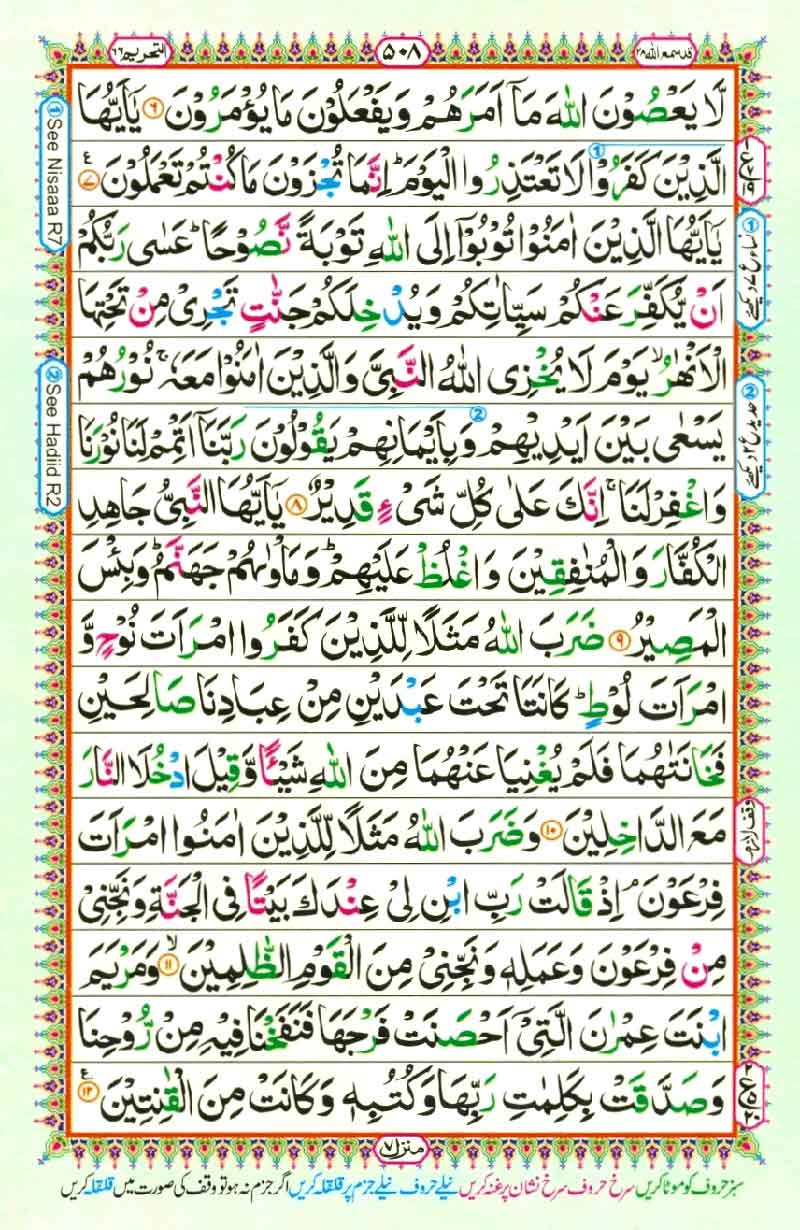 قد سمع الله ۲۸
۵۰۸
التحریم ۶۶
لَّا يَعْصُوْنَ اللّٰهَ مَاۤ اَمَرَهُمْ وَيَفْعَلُوْنَ مَا يُؤْمَرُوْنَ ۶ يٰۤاَيُّهَا
الَّذِيْنَ كَفَرُوْا لَا تَعْتَذِرُوا الْيَوْمَ ؕ اِنَّمَا تُجْزَوْنَ مَا كُنْتُمْ تَعْمَلُوْنَ ۷
يٰۤاَيُّهَا الَّذِيْنَ اٰمَنُوْا تُوْبُوْۤا اِلَى اللّٰهِ تَوْبَةً نَّصُوْحًا ؕ عَسٰى رَبُّكُمْ
اَنْ يُّكَفِّرَ عَنْكُمْ سَيِّاٰتِكُمْ وَيُدْخِلَكُمْ جَنّٰتٍ تَجْرِىْ مِنْ تَحْتِهَا
الْاَنْهٰرُ ۙ يَوْمَ لَا يُخْزِى اللّٰهُ النَّبِىَّ وَالَّذِيْنَ اٰمَنُوْا مَعَهٗ ۚ نُوْرُهُمْ
يَسْعٰى بَيْنَ اَيْدِيْهِمْ وَبِاَيْمَانِهِمْ يَقُوْلُوْنَ رَبَّنَاۤ اَتْمِمْ لَنَا نُوْرَنَا
وَاغْفِرْ لَنَا ۚ اِنَّكَ عَلٰى كُلِّ شَىْءٍ قَدِيْرٌ ۸ يٰۤاَيُّهَا النَّبِىُّ جَاهِدِ
الْكُفَّارَ وَالْمُنٰفِقِيْنَ وَاغْلُظْ عَلَيْهِمْ ؕ وَمَاْوٰىهُمْ جَهَنَّمُ ؕ وَبِئْسَ
الْمَصِيْرُ ۹ ضَرَبَ اللّٰهُ مَثَلًا لِّلَّذِيْنَ كَفَرُوا امْرَاَتَ نُوْحٍ وَّ
امْرَاَتَ لُوْطٍ ؕ كَانَتَا تَحْتَ عَبْدَيْنِ مِنْ عِبَادِنَا صَالِحَيْنِ
فَخَانَتٰهُمَا فَلَمْ يُغْنِيَا عَنْهُمَا مِنَ اللّٰهِ شَيْـًٔا وَّقِيْلَ ادْخُلَا النَّارَ
مَعَ الدّٰخِلِيْنَ ۱۰ وَضَرَبَ اللّٰهُ مَثَلًا لِّلَّذِيْنَ اٰمَنُوا امْرَاَتَ
فِرْعَوْنَ ۘ اِذْ قَالَتْ رَبِّ ابْنِ لِىْ عِنْدَكَ بَيْتًا فِى الْجَنَّةِ وَنَجِّنِىْ
مِنْ فِرْعَوْنَ وَعَمَلِهٖ وَنَجِّنِىْ مِنَ الْقَوْمِ الظّٰلِمِيْنَ ۙ ۱۱ وَمَرْيَمَ
ابْنَتَ عِمْرٰنَ الَّتِىْۤ اَحْصَنَتْ فَرْجَهَا فَنَفَخْنَا فِيْهِ مِنْ رُّوْحِنَا
وَصَدَّقَتْ بِكَلِمٰتِ رَبِّهَا وَكُتُبِهٖ وَكَانَتْ مِنَ الْقٰنِتِيْنَ ۱۲
① See Nisaaa R7
② See Hadiid R2
وقف لازم
منزل ۷
سبز حروف کو موٹا کریں سرخ حروف سرخ نشان پر غنہ کریں نیلے حروف نیلے جزم پر قلقلہ کریں اگر جزم نہ ہو تو وقف کی صورت میں قلقلہ کریں